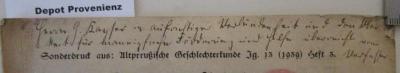 Depot Provenienz
Herrn G. Kayser in aufrichtiger Verbundenheit und dem
für mannigfache Förderung und Hilfe überreicht vom
Sonderdruck aus: Altpreußische Geschlechterkunde Jg. 13 (1939) Heft 3. Verfasser